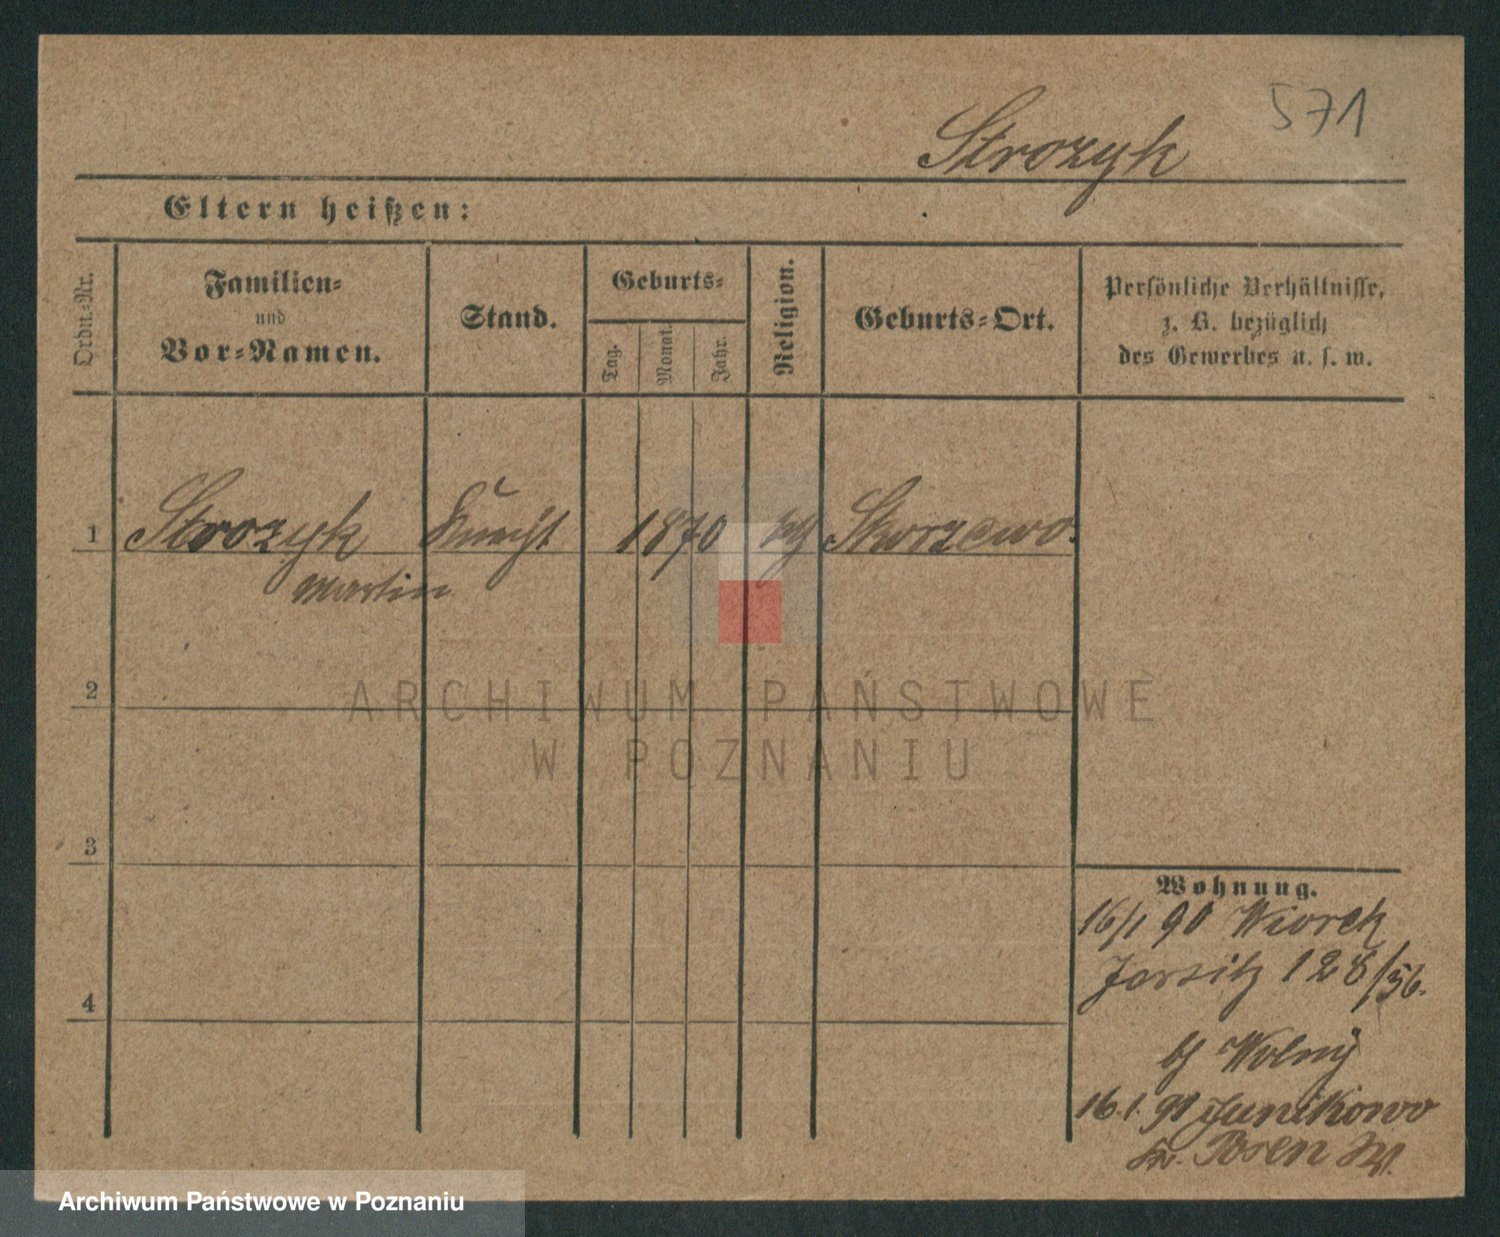 571
Strozyk
Eltern heißen:
Ordn.-Nr.
Familien-
und
Vor-Namen.
Stand.
Geburts-
Tag.
Monat.
Jahr.
Religion.
Geburts-Ort.
Persönliche Verhältnisse,
z. B. bezüglich
des Gewerbes u. s. w.
1
Strozyk
Knecht
1870
Skorzewo
Martin
2
ARCHIWUM PAŃSTWOWE
W POZNANIU
3
Wohnung.
16/1 90 Wiorek
Jersitz 128/56.
4
Wolny
16.1.91 Junikowo
Kr. Posen
Archiwum Państwowe w Poznaniu